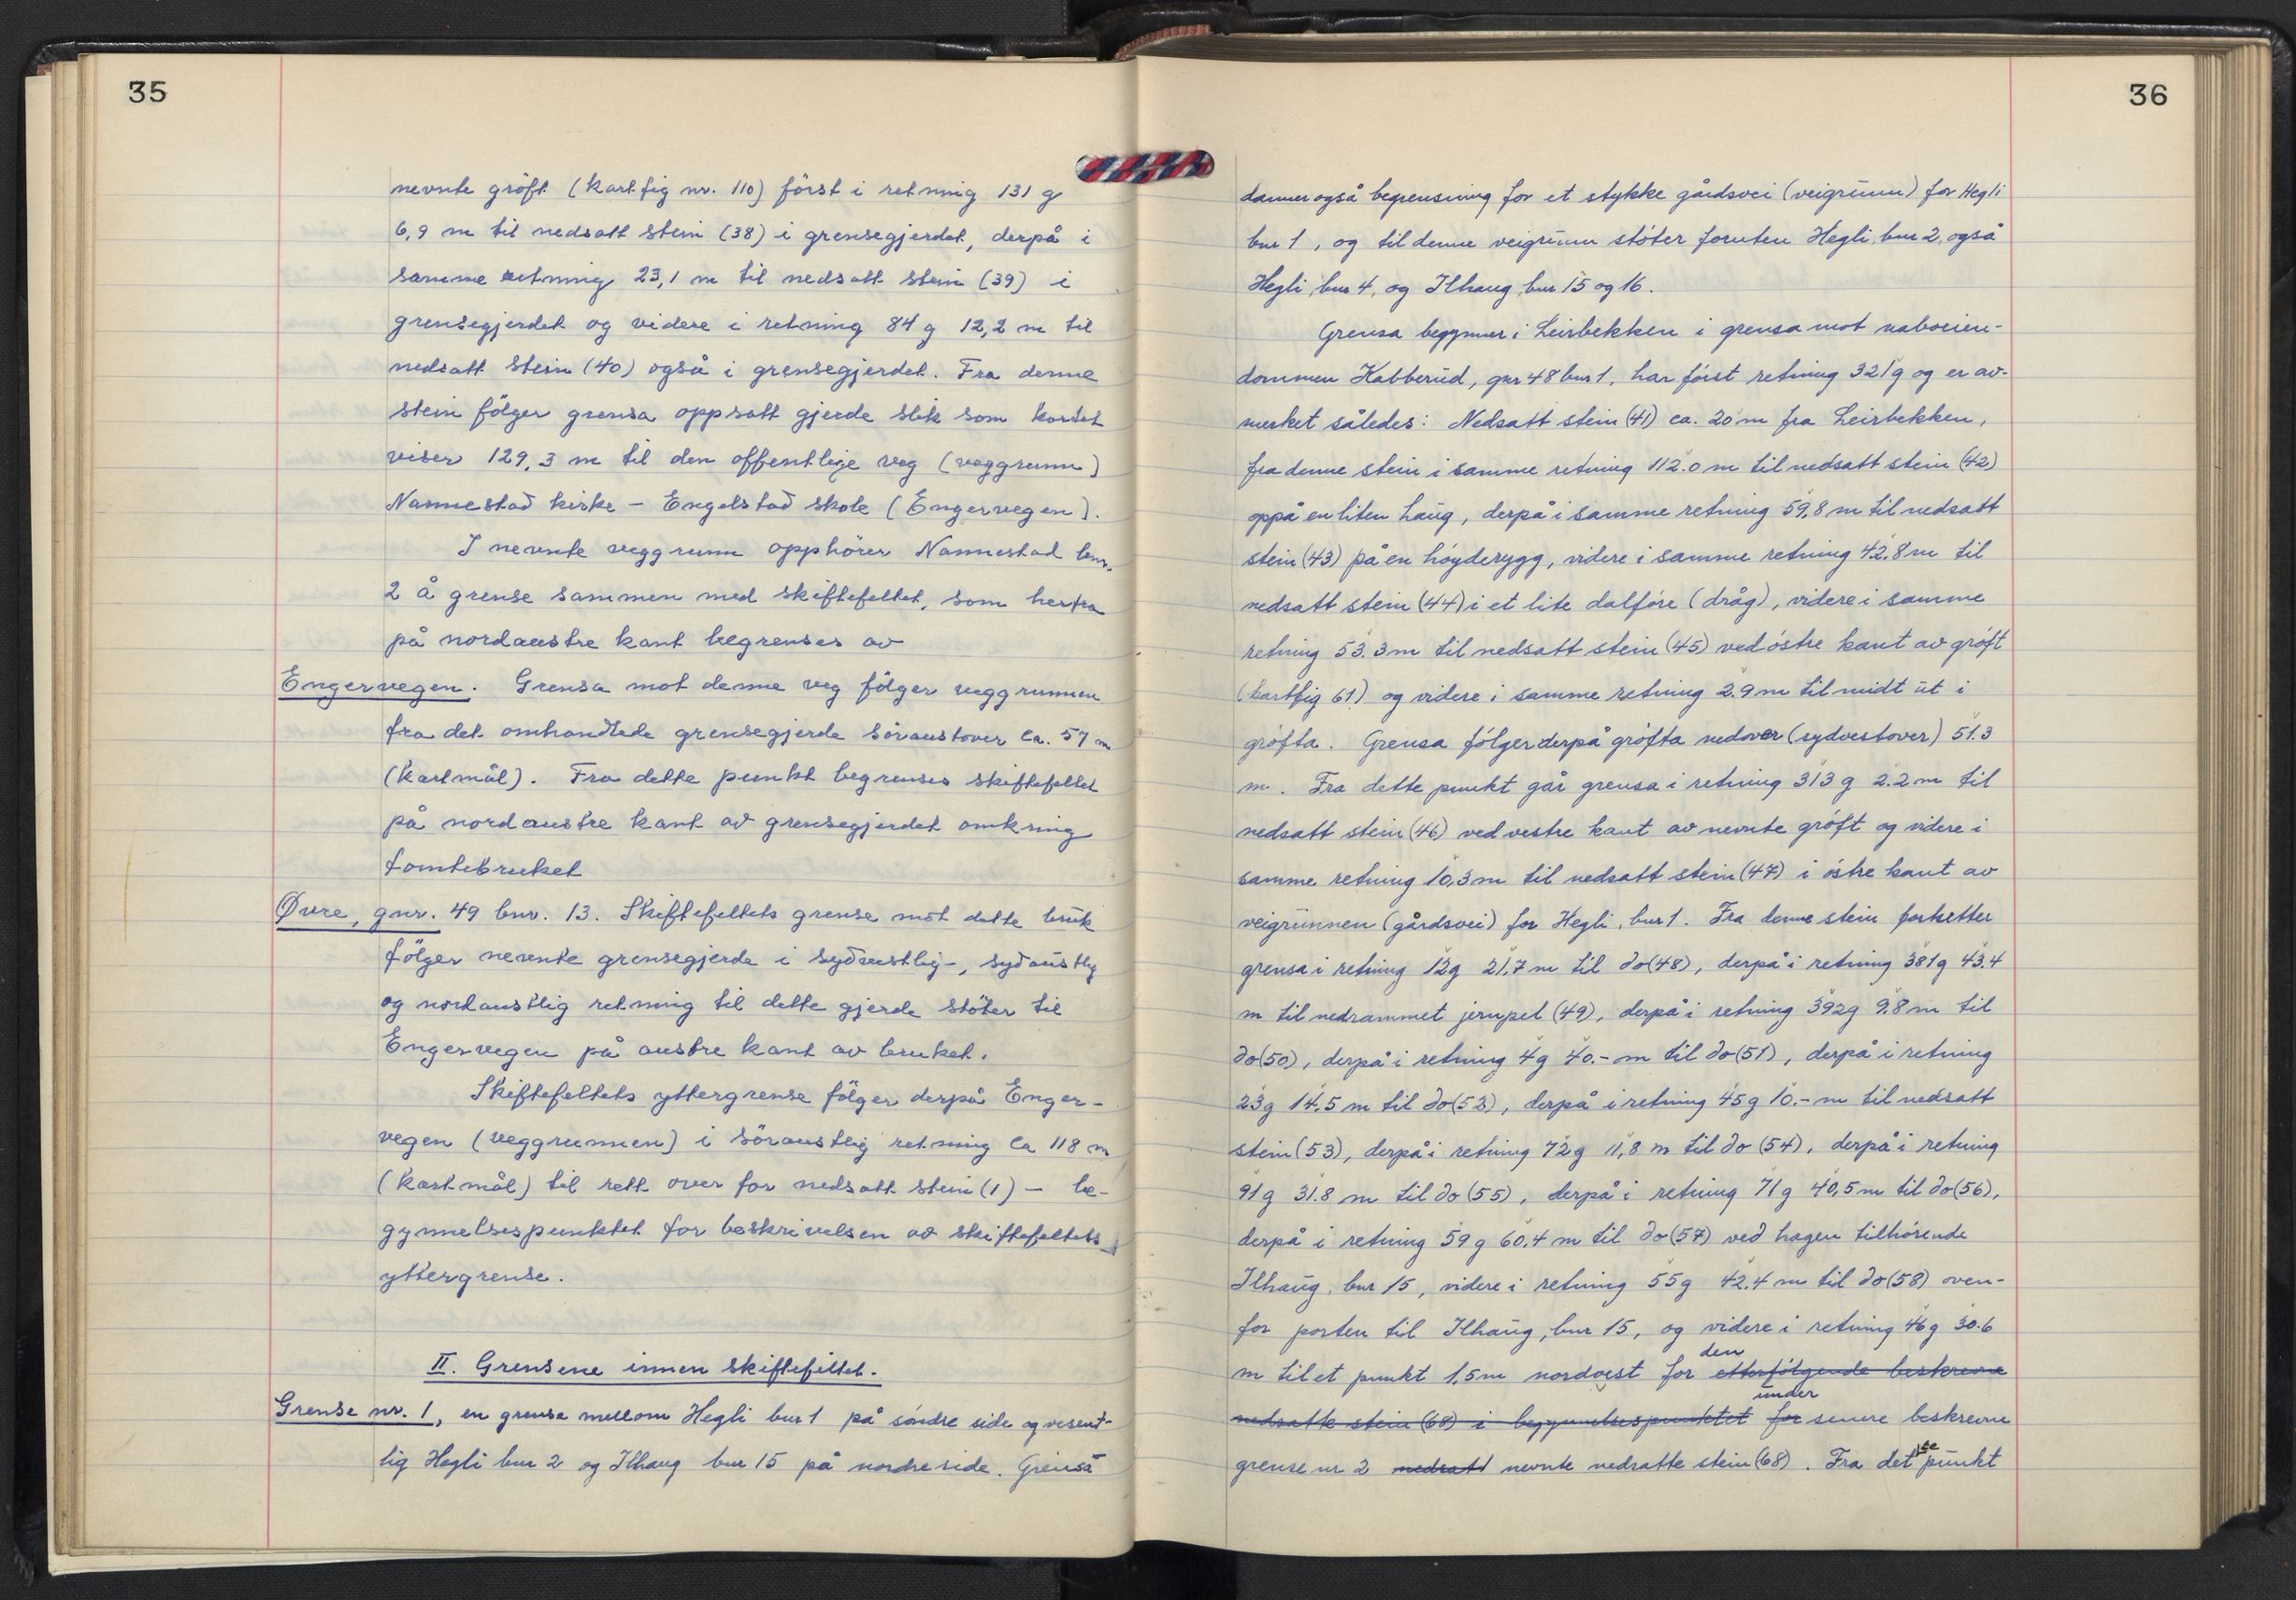 35
nevnte gröft (kart fig nr. 110) först i retning 131 g
6,9 m til nedsatt stein (38) i grensegjerdet, derpå i
samme retning 23,1 m til nedsatt stein (39) i
grensegjerdet og videre i retning 84 g 12,2 m til
nedsatt stein (40) også i grensegjerdet. Fra denne
stein fölger grensa oppsatt gjerde slik som kartet
viser 129,3 m til den offentlige veg (veggrunn)
Nannestad kirke – Engelstad skole (Engervegen).
I nevnte veggrunn opphörer Nannestad bnr.
2 å grense sammen med skiftefeltet, som herfra
på nordaustre kant begrenses av
Engervegen. Grensa mot denne veg fölger veggrunnen
fra det omhandlede grensegjerde söraustover ca. 57 m
(kartmål). Fra dette punkt begrenses skiftefeltet
på nordaustre kant av grensegjerdet omkring
tomtebruket
Øvre, gnr. 49 bnr. 13. Skiftefeltets grense mot dette bruk
fölger nevnte grensegjerde i sydvestlig-, sydaustlig
og nordaustlig retning til dette gjerde stöter til
Engervegen på austre kant av bruket.
Skiftefeltets yttergrense fölger derpå Enger-
vegen (veggrunnen) i söraustlig retning ca 118 m
(kartmål) til rett over for nedsatt stein (1) – be-
gynnelsespunktet for beskrivelsen av skiftefeltets
yttergrense.
II. Grensene innen skiftefeltet.
Grense nr. 1, en grense mellom Hegli bnr 1 på söndre side og vesent-
lig Hegli bnr 2 og Ilhaug bnr 15 på nordre side. Grensa
36
danner også begrensning for et stykke gårdsvei (veigrunn) for Hegli
bnr 1, og til denne veigrunn stöter foruten Hegli, bnr 2, også
Hegli, bnr 4, og Ilhaug, bnr 15 og 16.
Grensa begynner i Leirbekken i grensa mot naboeien-
dommen Kabberud, gnr 48 bnr 1, har först retning 321g og er av-
merket således: Nedsatt stein (41) ca. 20 m fra Leirbekken,
fra denne stein i samme retning 112.0 m til nedsatt stein (42)
oppå en liten haug, derpå i samme retning 59,8 m til nedsatt
stein (43) på en höyderygg, videre i samme retning 42.8 m til
nedsatt stein (44) i et lite dalföre (dråg), videre i samme
retning 53.3 m til nedsatt stein (45) ved östre kant av gröft
(kartfig 61) og videre i samme retning 2.9 m til midt ut i
gröfta. Grensa fölger derpå gröfta nedover (sydvestover) 51.3
m. Fra dette punkt går grensa i retning 313 g 2.2 m til
nedsatt stein (46) ved vestre kant av nevnte gröft og videre i
samme retning 10,3 m til nedsatt stein (47) i östre kant av
veigrunnen (gårdsvei) for Hegli, bnr 1. Fra denne stein fortsetter
grensa i retning 12g 21.7 m til do (48), derpå i retning 381g 43.4
m til nedrammet jernpel (49), derpå i retning 392g 9.8 m til
do (50), derpå i retning 4g 40.- m til do (51), derpå i retning
23g 14,5 m til do (52), derpå i retning 45g 10.- m til nedsatt
stein (53), derpå i retning 72g 11,8 m til do (54), derpå i retning
91g 31.8 m til do (55), derpå i retning 71g 40,5 m til do (56),
derpå i retning 59 g 60.4 m til do (57) ved hagen tilhörende
Ilhaug, bnr 15, videre i retning 55g 42.4 m til do (58) oven-
for porten til Ilhaug, bnr 15, og videre i retning 46g 30.6
m til et punkt 1,5 m nordvest for den etterfölgende beskrevne
nedsatte stein (68) i begynnelsespunktet for under senere beskrevne
grense nr 2 nedsatt nevnte nedsatte stein (68). Fra det punkt